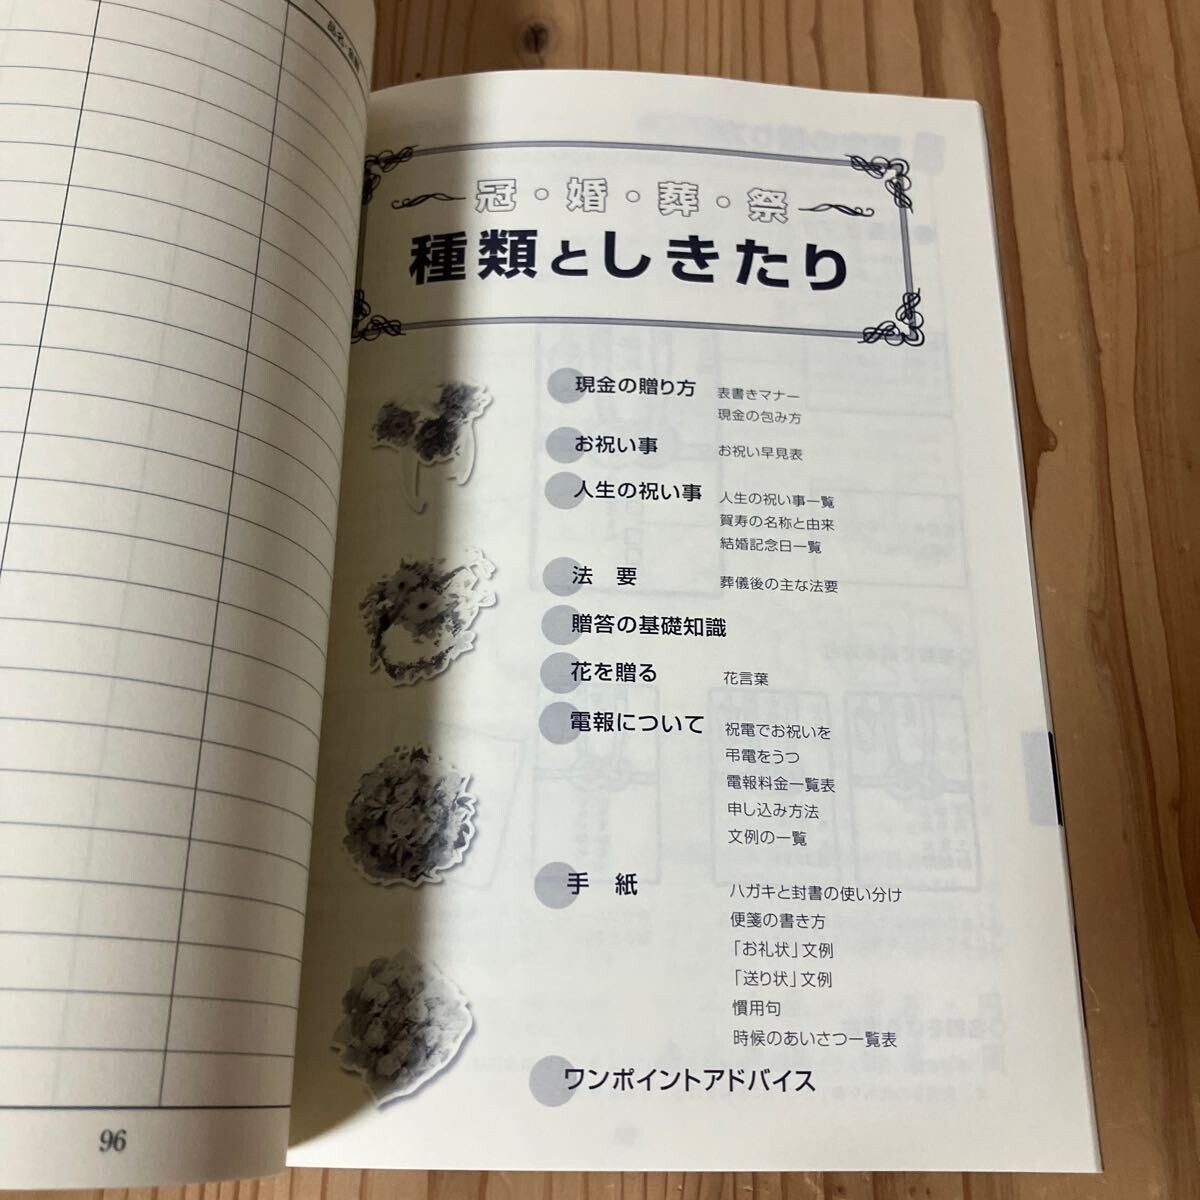 冠・婚・葬・祭
種類としきたり
現金の贈り方 表書きマナー
現金の包み方
お祝い事 お祝い早見表
人生の祝い事 人生の祝い事一覧
賀寿の名称と由来
結婚記念日一覧
法 要 葬儀後の主な法要
贈答の基礎知識
花を贈る 花言葉
電報について 祝電でお祝いを
弔電をうつ
電報料金一覧表
申し込み方法
文例の一覧
手 紙 ハガキと封書の使い分け
便箋の書き方
「お礼状」文例
「送り状」文例
慣用句
時候のあいさつ一覧表
ワンポイントアドバイス
96